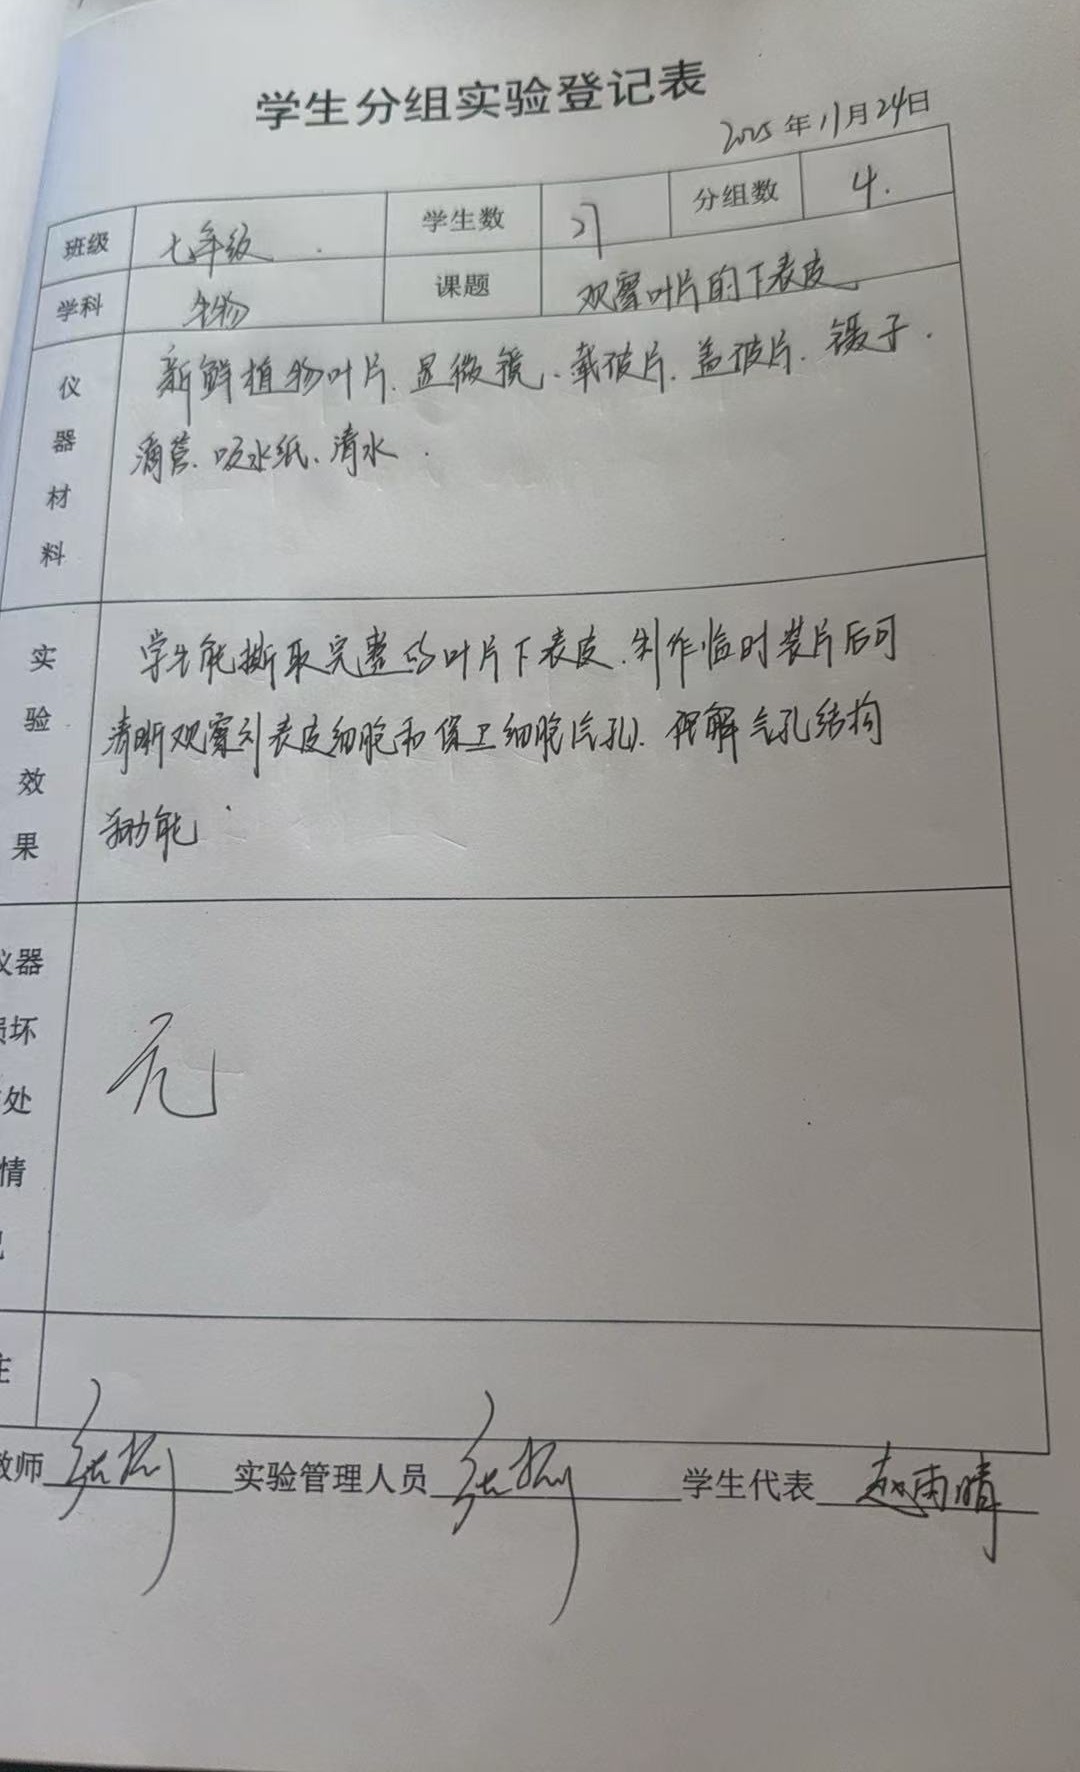 学生分组实验登记表
2025年11月24日
班级 七年级 学生数 27 分组数 4.
学科 生物 课题 观察叶片的下表皮
仪器材料 新鲜植物叶片、显微镜、载玻片、盖玻片、镊子.
滴管、吸水纸、清水.
实验效果 学生能撕取完整的叶片下表皮、制作临时装片后可
清晰观察到表皮细胞和保卫细胞(气孔)、理解气孔结构
和功能.
仪器
损坏
处
情
无
注
教师 实验管理人员 学生代表 赵雨晴